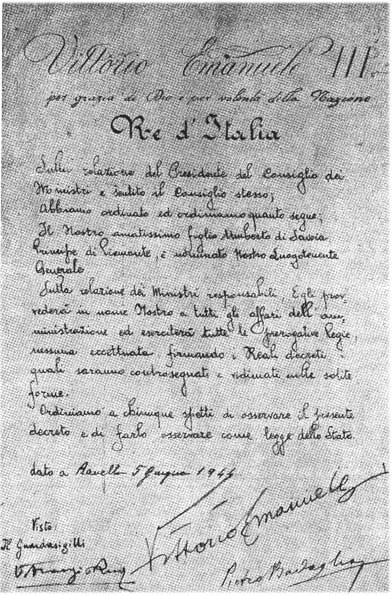 Vittorio Emanuele III.
per grazia di Dio e per volontà della Nazione
Re d'Italia
Sulla relazione del Presidente del Consiglio dei
Ministri e sentito il Consiglio stesso;
Abbiamo ordinato ed ordiniamo quanto segue;
Il Nostro amatissimo figlio Umberto di Savoia
Principe di Piemonte, è nominato Nostro Luogotenente
Generale
Sulla relazione dei Ministri responsabili, Egli prov
vederà in nome Nostro a tutti gli affari dell'am,
ministrazione ed eserciterà tutte le prerogative Regie,
nessuna eccettuata, firmando i Reali decreti
quali saranno controsegnati e vidimati nelle solite
forme.
Ordiniamo a chiunque spetti di osservare il presente
decreto e di farlo osservare come legge dello Stato.
dato a Ravello 5 Giugno 1944
Vittorio Emanuele
Visto:
Il Guardasigilli
Pietro Badoglio